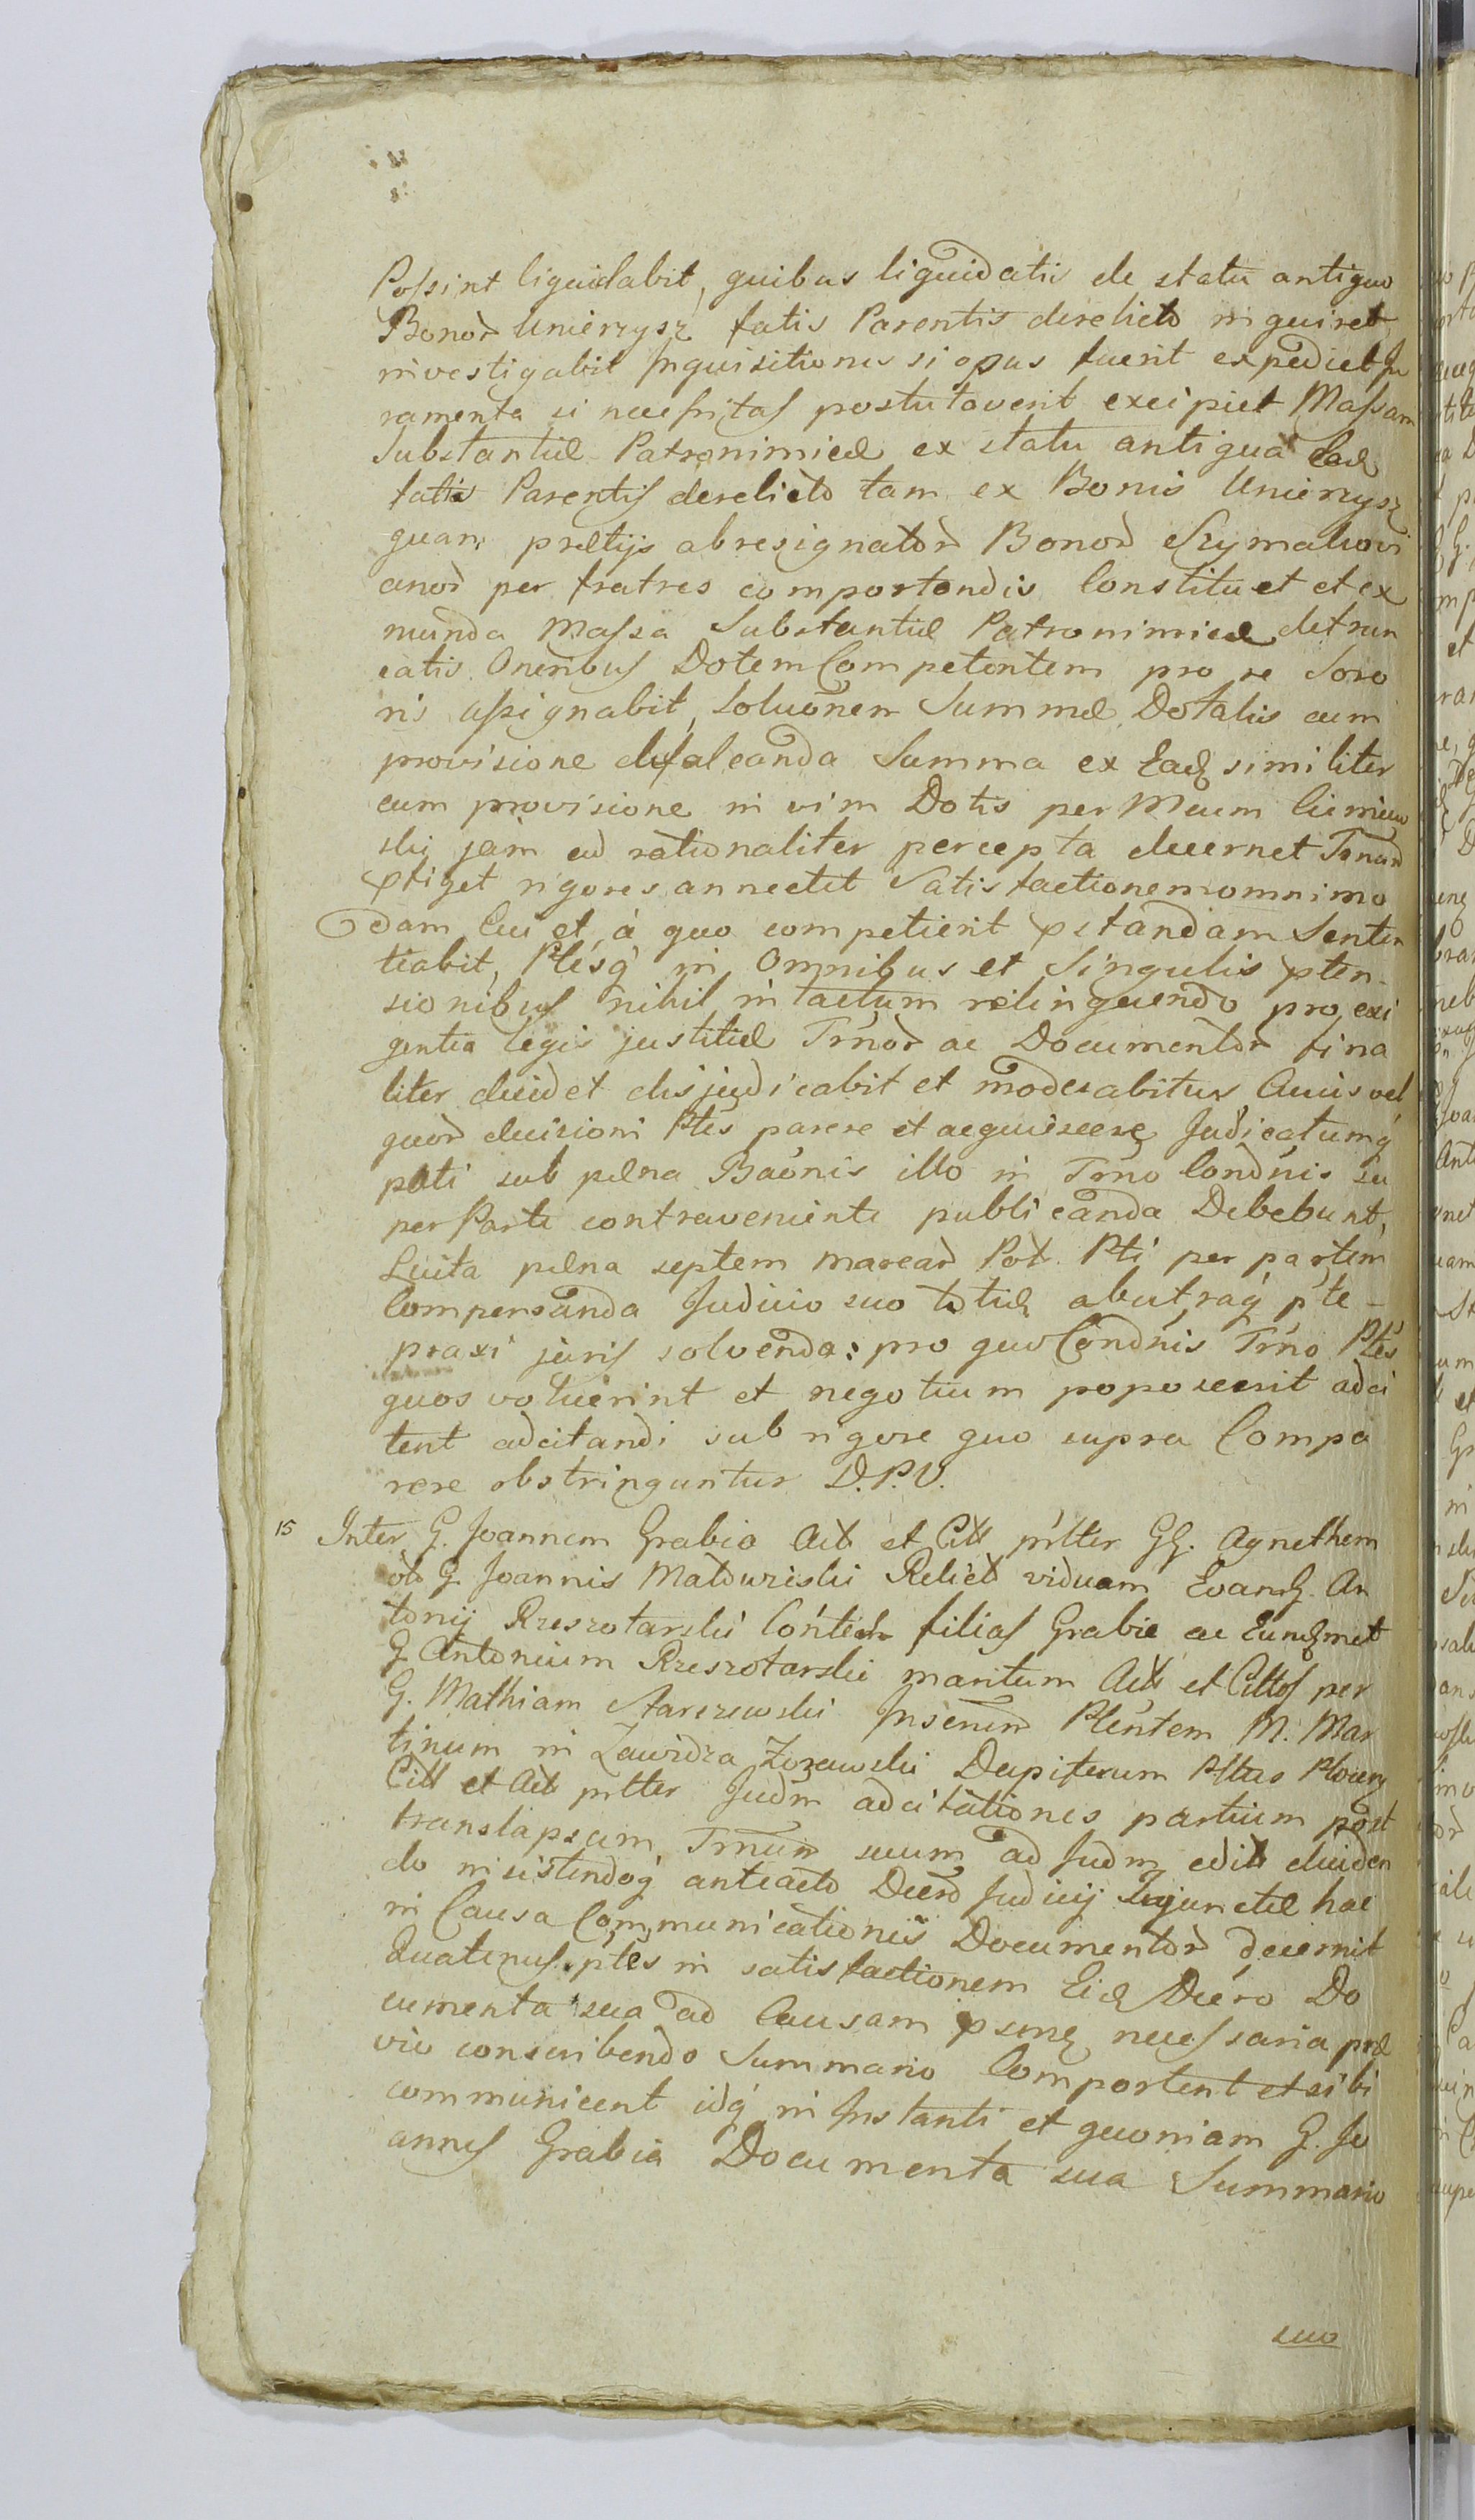 Possint liquidabit, quibus liquidatis de statu antiquo
Bonor Unierzysz fatis Parentis derelicto inquiret
investigabit Inquisitiones si opus fuerit expediet Ju
ramenta si necessitas postulaverit excipiet Massam
Substantiæ Patrimonicæ ex statu antiqua
fatis Parentis derelicto tam ex Bonis Unierzysz
quam prætijs abresignator Bonor Szymakovi
anor per fratres comportandis Constituet et ex
munda Massa Substantiæ Patronimicæ detrun
catis Oneribus Dotem Competentem pro re Soro
ris assignabit, Soluōnem Summæ Dotalis cum
provisione defalcanda Summa ex Eadq similiter
cum provisione in vim Dotis per Meum
ski jam ad rationaliter percepta decernet
pfiget rigores annectet Satisfactionem omnimo
dam Cui et à quo competierit pstandam Senten
tiabit, Ptesq in Omnibus et Singulis pten
sionibus nihil intactum relinquendo pro exi
gentia legis justitiæ Trnor ac Documentor fina
liter decidet disjudicabit et moderabitur Cuius vel
quor decisioni Ptes parere et acquiescere Judicatumq
pati sub pæna Baōnis illo in Trno Condnis su
per Parte contraveniente publicanda Debebunt,
Luita pæna septem marcar Pol. Pti per partem
Compensanda Judicio suo totidq ab utraq pte
praxi juris solvenda: pro quo Condnis Trno Ptes
quos voluerint et negotium poposcerit adci
tent adcitandi sub rigore quo supra Compa
rere obstringuntur D.P.V.
15 Inter G. Joannem Grabia Act et Citt pntter GG. Agnethem
olo G. Joannis Matowizski Relict viduam Evam G. An
tonij Rzeszotarski Contem filias Grabie ac Eundmet
G Antonium Rzeszotarski maritum Act et Cittos per
G. Mathiam Starczewski Ptentem M. Mar
tinum in Zawidza Zozawski Dapiferum Pttus Plocen
Citt et Act pntter Judm adcitationes partium post
translapsum Trnum suum ad Judm edit deciden
do insistendoq anteacto Decro Judicij Injunctæ hac
in Causa Communicationis Documentor decernit
Quatenus ptes in satisfactionem Eid Decro Do
cumenta sua ad Causam psente necessaria præ
vio conscribendo Summario Comportent et sibi
communicent idq in Instanti et quoniam G. Jo
annes Grabia Documenta sua Summario
suo